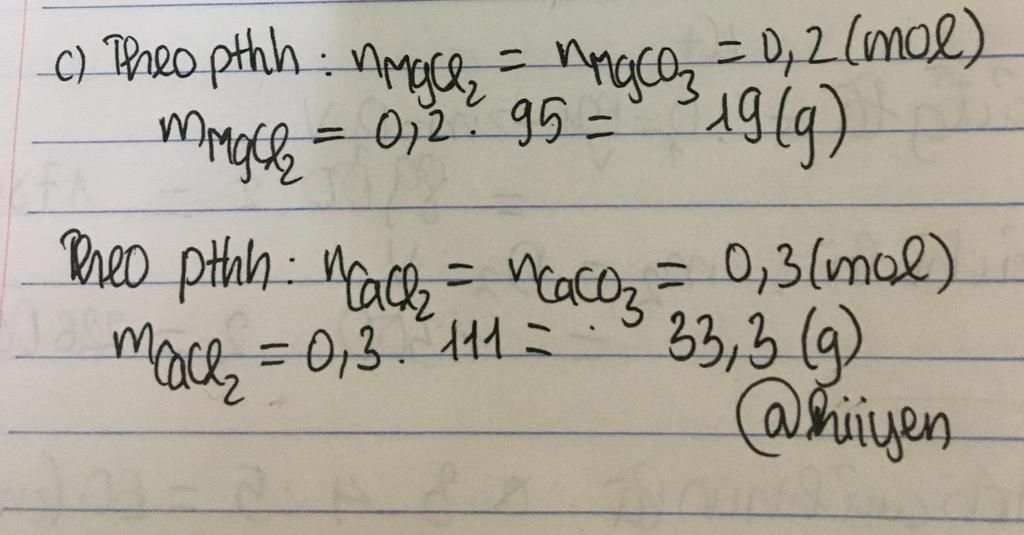 c) Theo pthh : nMgCl₂ = nMgCO₃ = 0,2 (mol)
mMgCl₂ = 0,2 . 95 = 19 (g)
Theo pthh : nCaCl₂ = nCaCO₃ = 0,3 (mol)
mCaCl₂ = 0,3 . 111 = 33,3 (g)